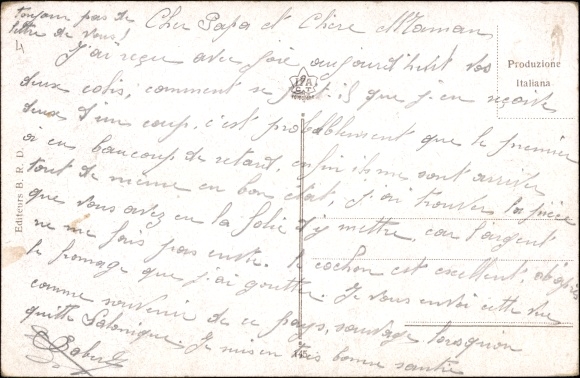 toujours pas de
lettre de vous !
Cher Papa et Chère Maman
J'ai reçu avec joie aujourd'huit vos
deux colis, comment se fait-il que j'en reçoive
deux d'un coup, c'est probablement que le premier
a eu beaucoup de retard, enfin ils me sont arrivés
tout de même en bon état, j'ai trouver la pièce
que vous avez eu la folie d'y mettre, car l'argent
ne me fais pas envie. le cochon est excellent, d'après
le fromage que j'ai goutté. Je vous envoi cette vue
comme souvenir de ce pays, sauvage lorsqu'on
quitte Salonique. Je suis en très bonne santé
Robert
Produzione
Italiana
Editeurs B. R. D.
145